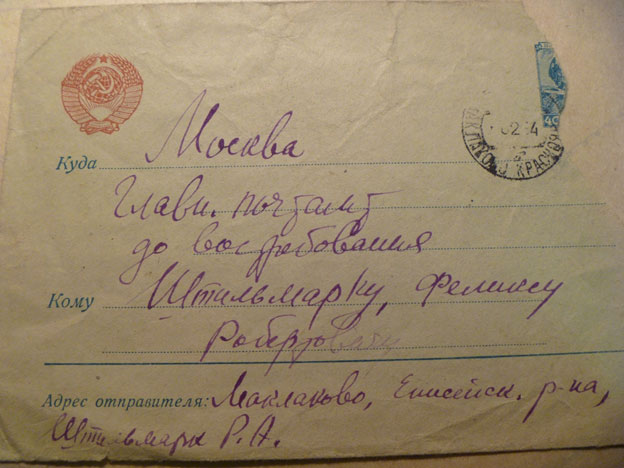 Куда Москва
Главн. почтамт
до востребования
Кому Штильмарку, Феликсу
Робертовичу
Адрес отправителя: Маклаково, Енисейск. р-на,
Штильмарк Р. А.